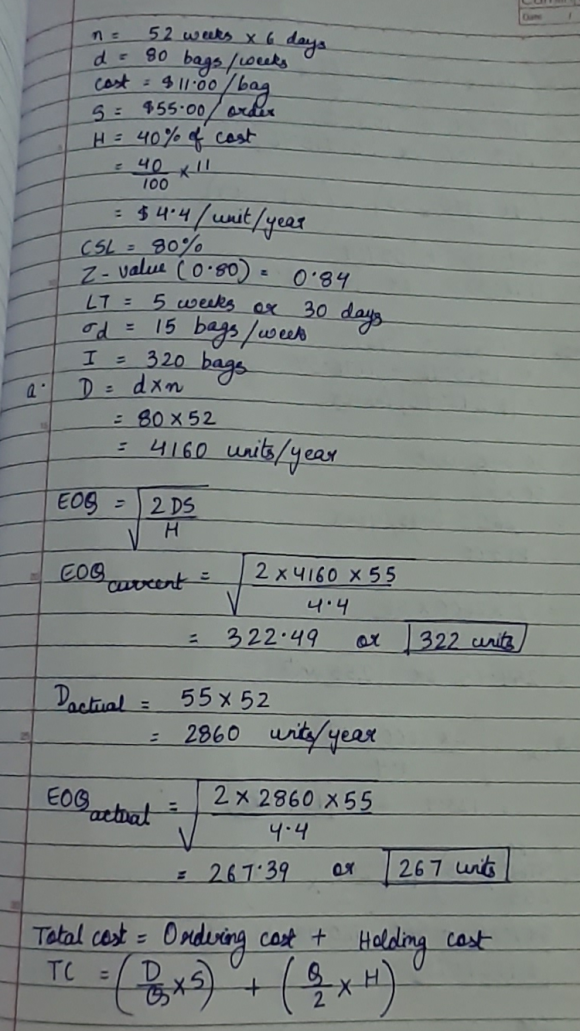 n = 52 weeks × 6 days
d = 80 bags/weeks
cost = $11.00/bag
S = $55.00/order
H = 40% of cost
= 40/100 × 11
= $4.4/unit/year
CSL = 80%
Z-value (0.80) = 0.84
LT = 5 weeks or 30 days
σd = 15 bags/week
I = 320 bags
a. D = d×n
= 80×52
= 4160 units/year
EOQ = √(2DS/H)
EOQ current = √(2×4160×55/4.4)
= 322.49 or 322 units
Dactual = 55×52
= 2860 units/year
EOQ actual = √(2×2860×55/4.4)
= 267.39 or 267 units
Total cost = Ordering cost + Holding cost
TC = (D/Q×S) + (Q/2×H)